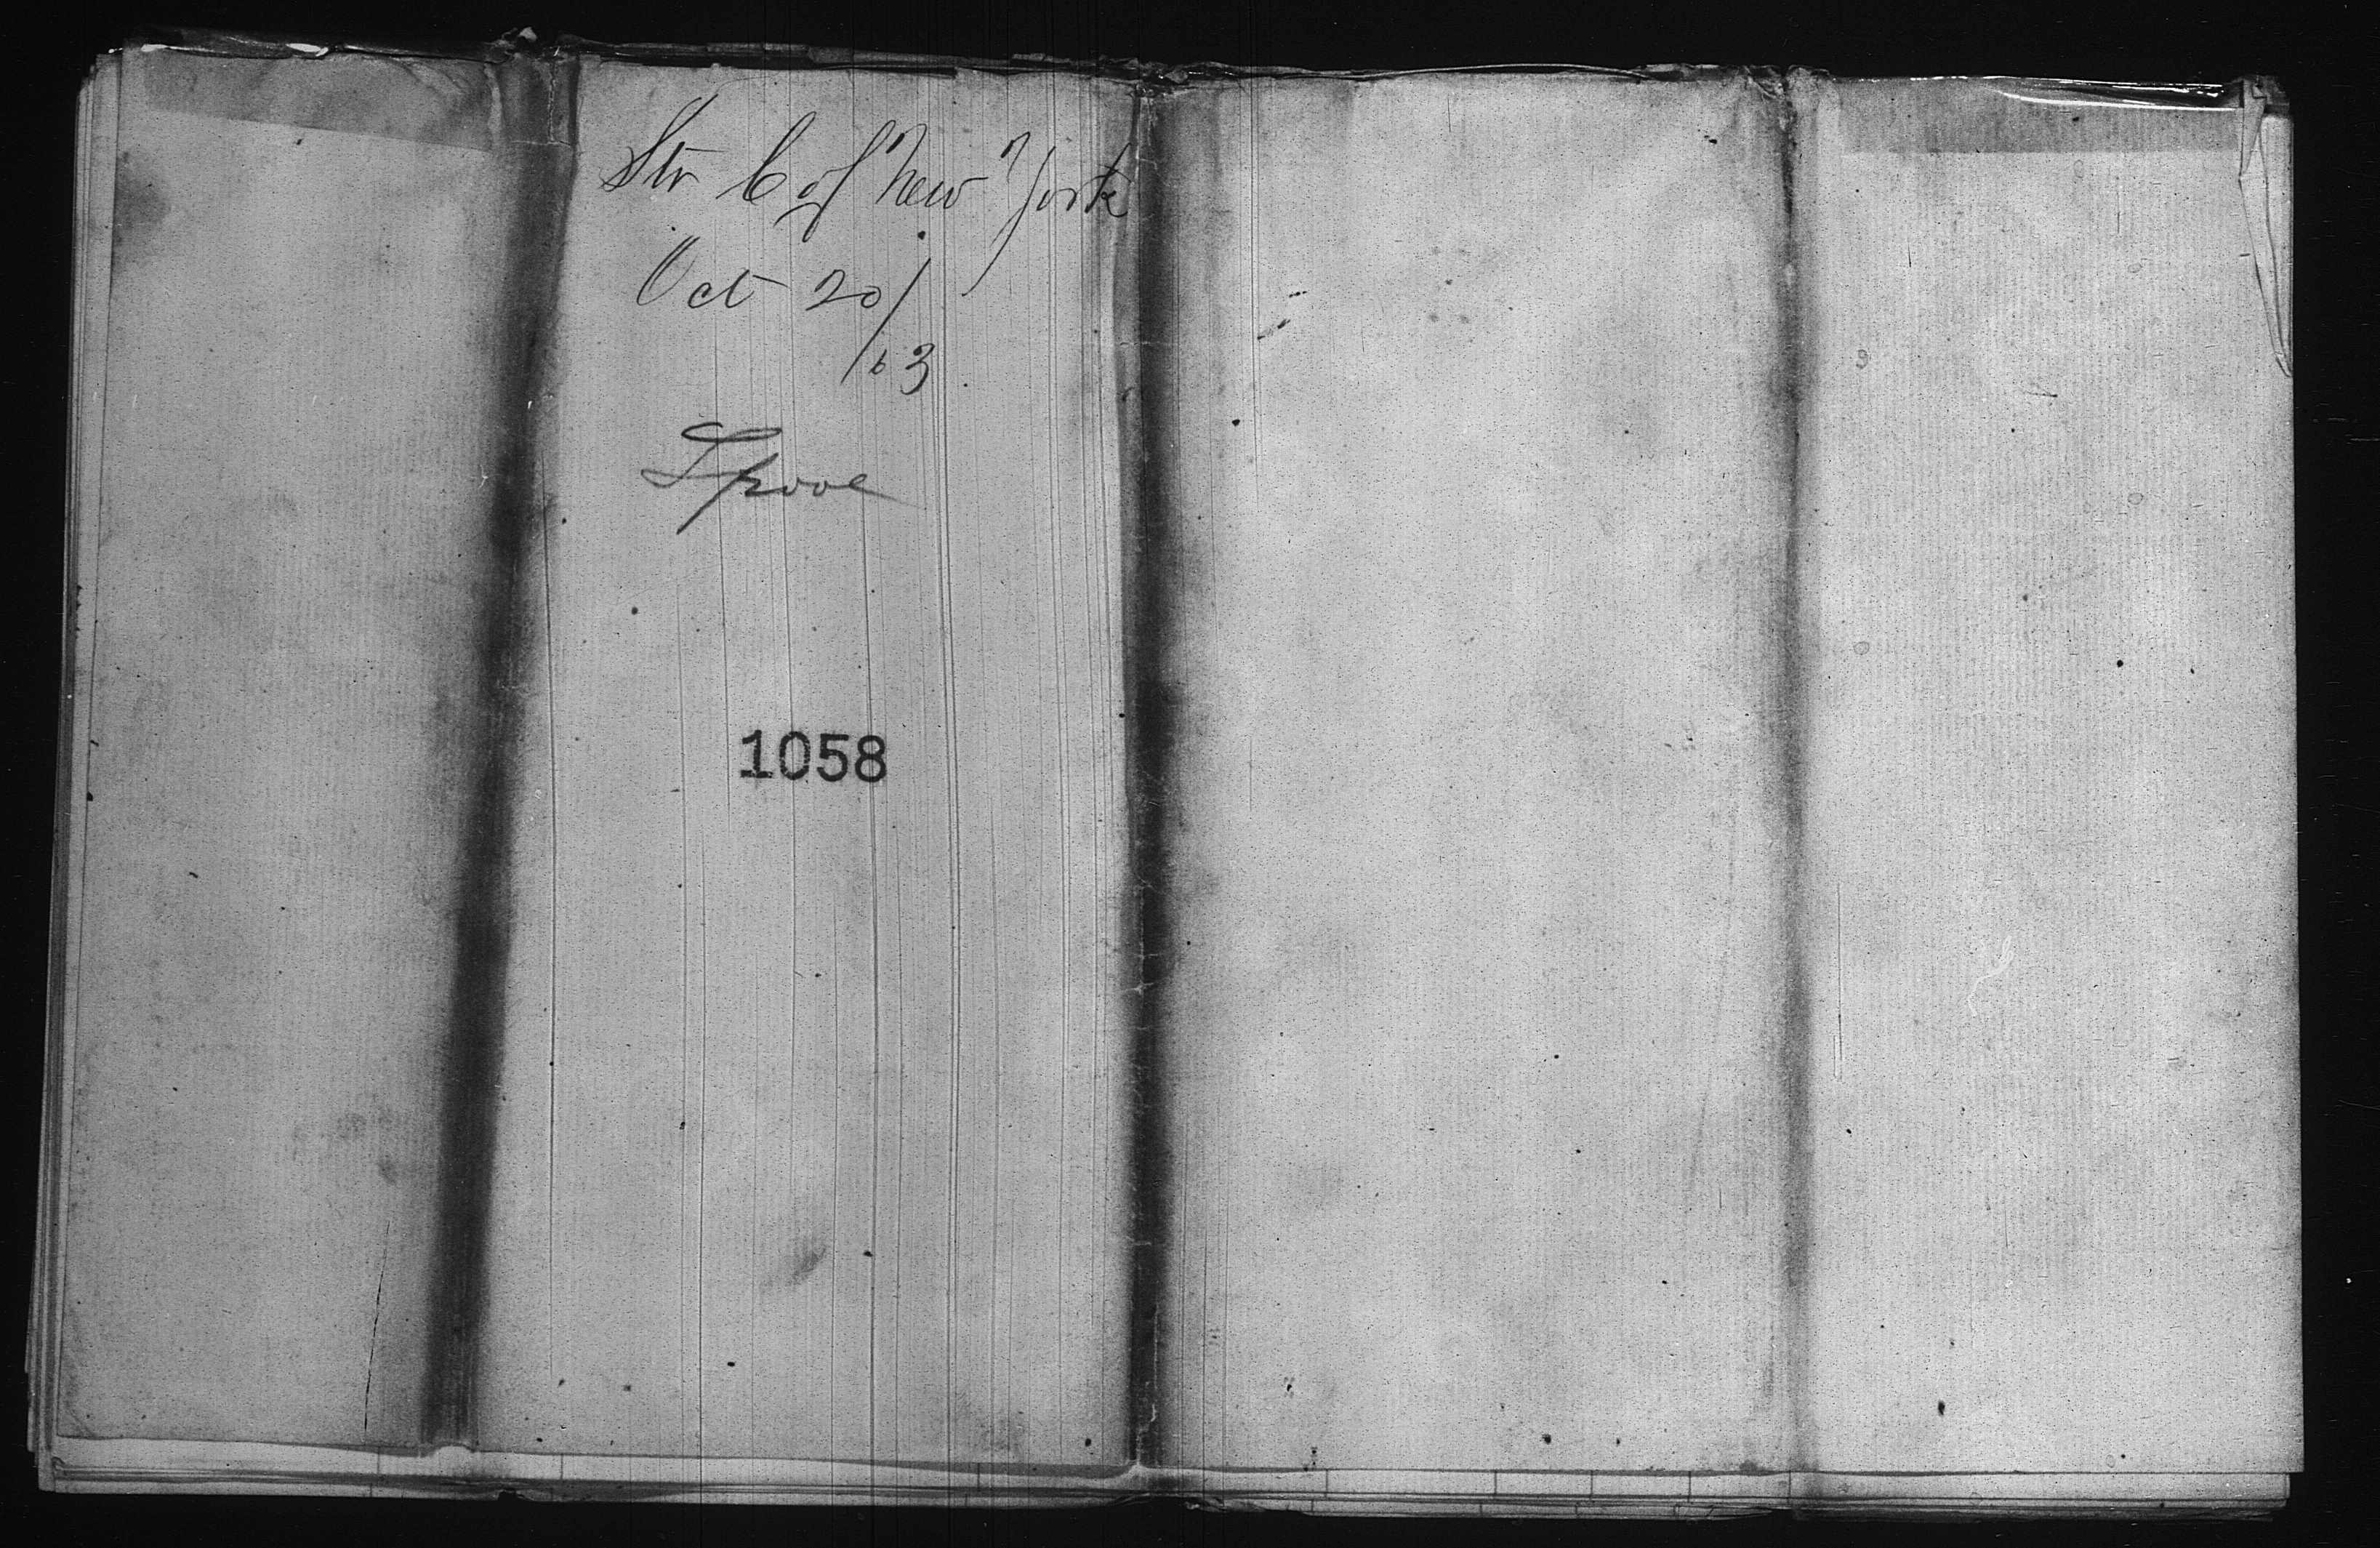 Str C of New York
Oct 20/
/63
Lpool
1058